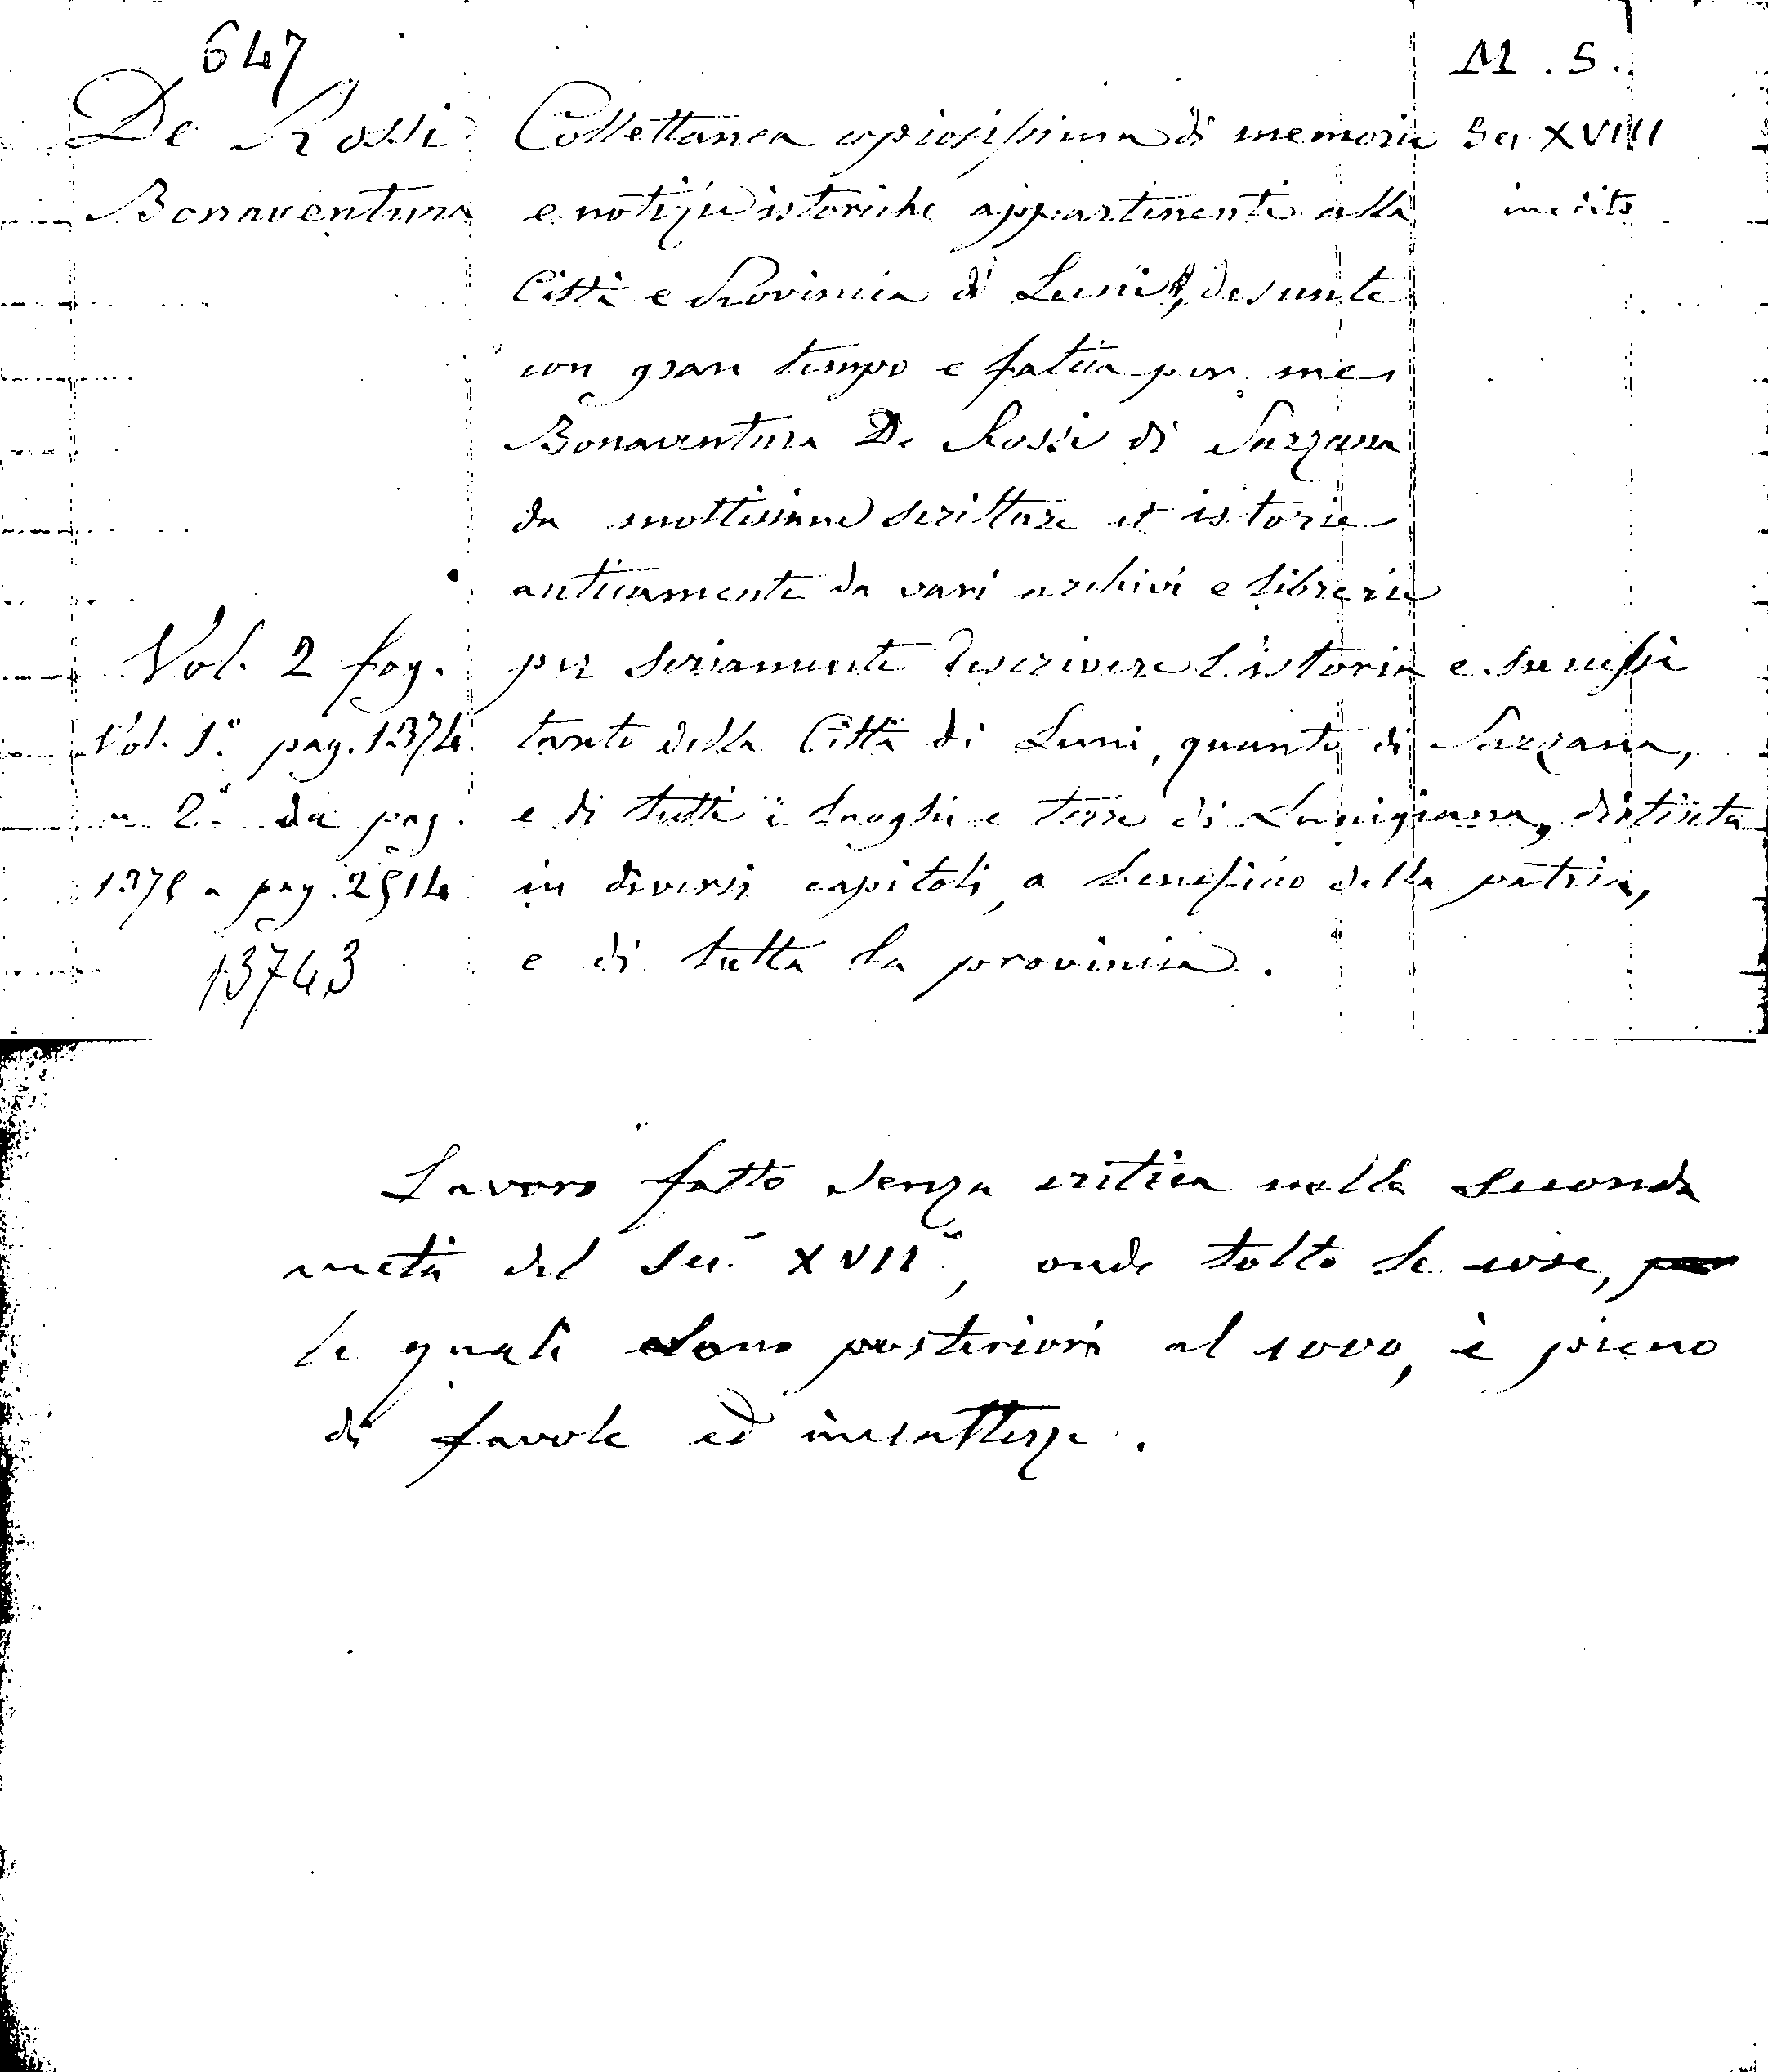 647
M. S.
De Rossi Collettanea copiosissima di memorie Sec XVIII
Bonaventura e notizie istoriche appartinenti alla inedito
Città e Provincia di Luni, desunte
con gran tempo e fatica per me
Bonaventura De Rossi di Sarzana
da moltissime scritture et istorie
anticamente da vari archivi e librerie
Vol. 2 fog. per seriamente descrivere l'istoria e successi
Vol. 1.° pag. 1374 tanto della Città di Luni, quanto di Sarzana,
" 2.° da pag. e di tutti i luoghi e terre di Lunigiana, distinta
1375 a pag. 2514 in diversi capitoli, a beneficio della patria,
13743 e di tutta la provincia.
Lavoro fatto senza critica nella seconda
metà del Sec.° XVII°, onde tolto le cose,
le quali sono posteriori al 1000, è pieno
di favole ed inesattezze.